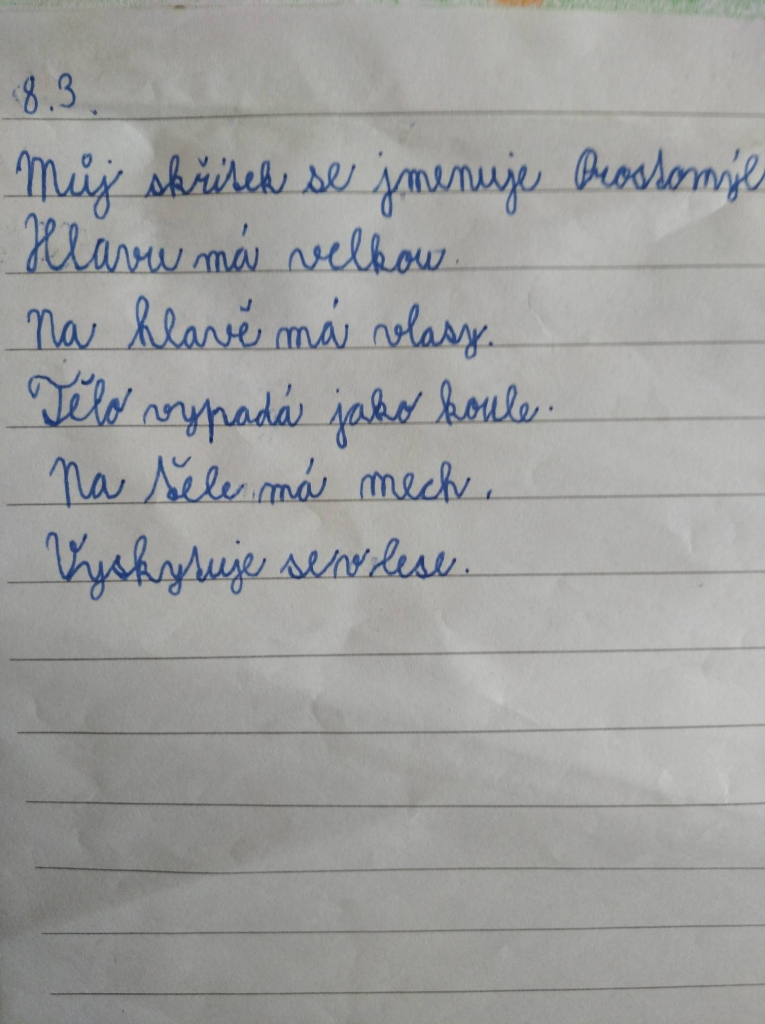 8.3.
Můj skřítek se jmenuje
Hlavu má velkou.
Na hlavě má vlasy.
Tělo vypadá jako koule.
Na těle má mech.
Vyskytuje se v lese.